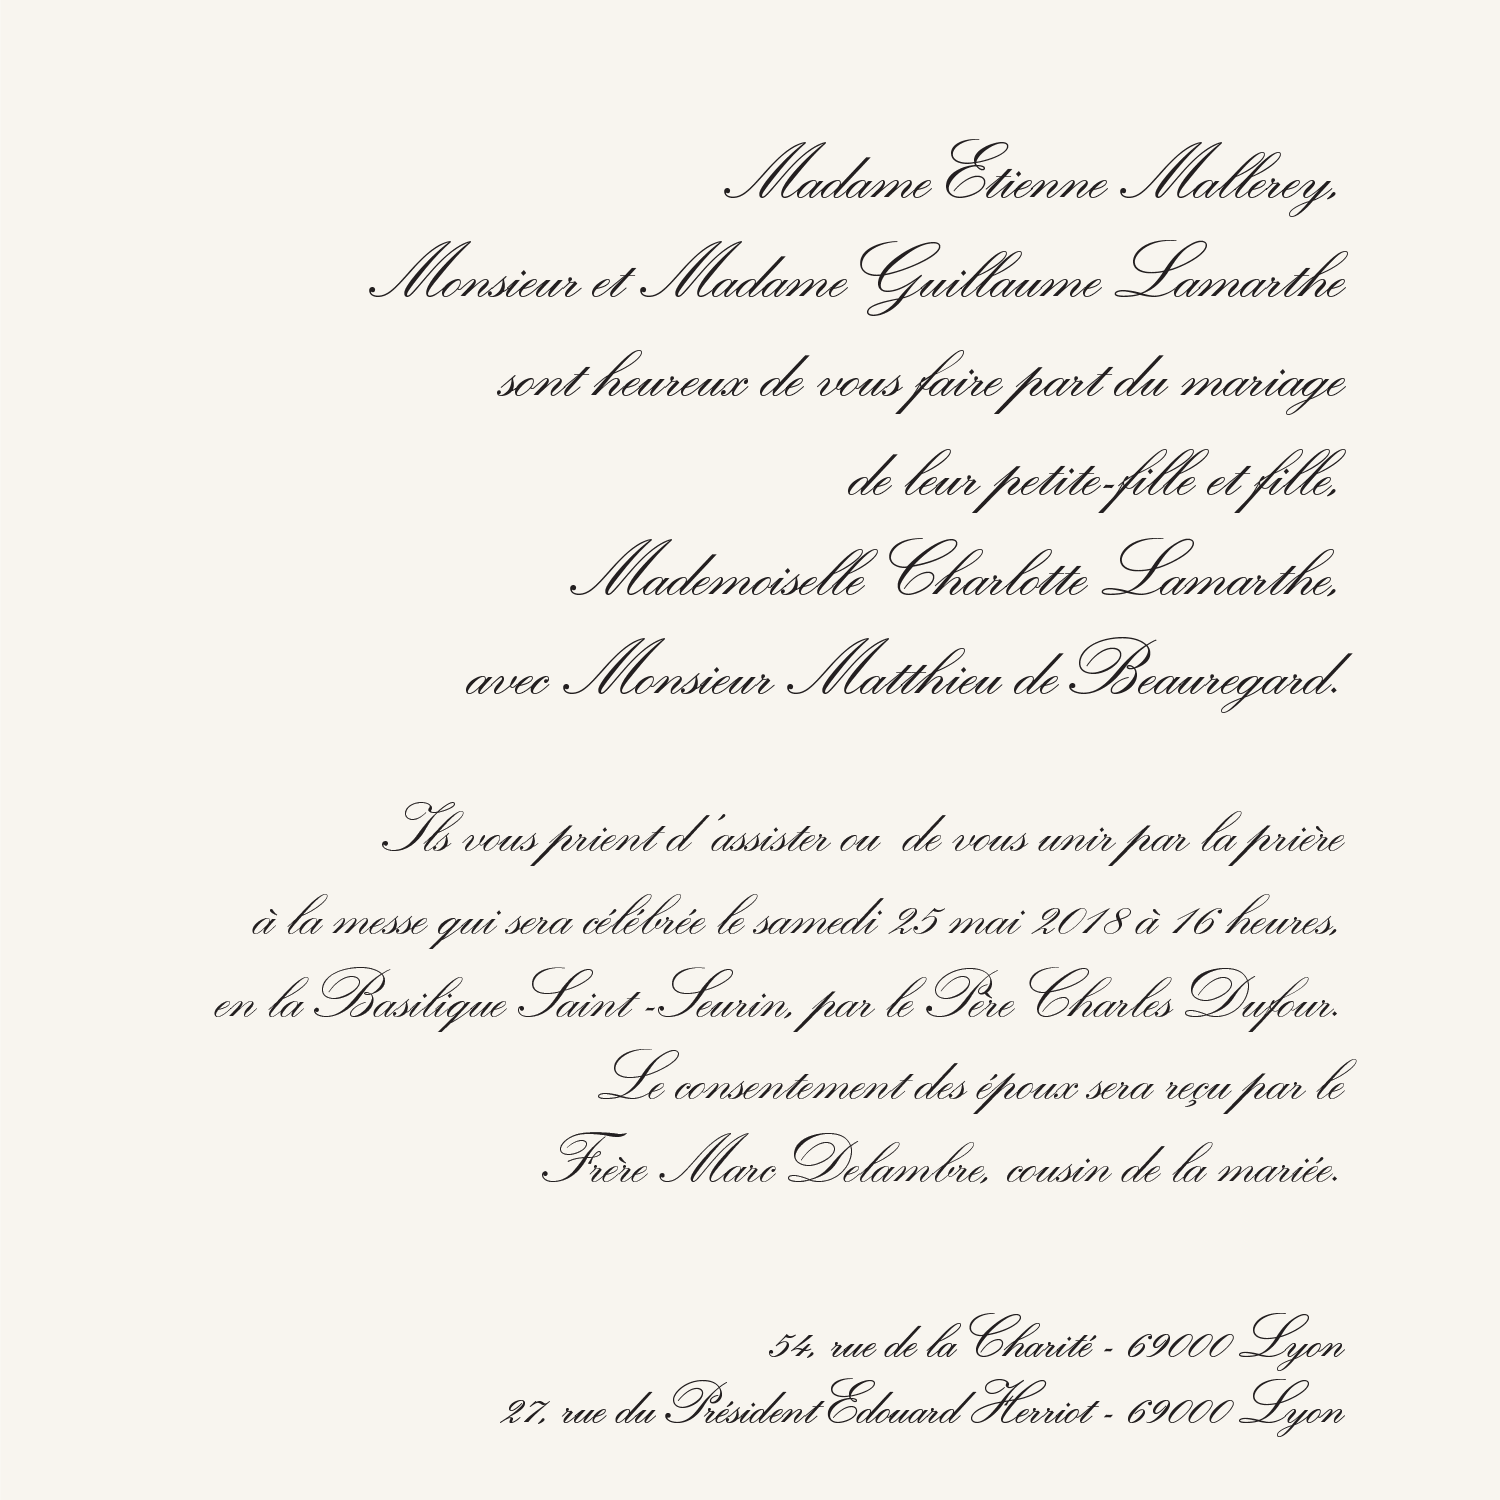 Madame Etienne Mallerey,
Monsieur et Madame Guillaume Lamarthe
sont heureux de vous faire part du mariage
de leur petite-fille et fille,
Mademoiselle Charlotte Lamarthe,
avec Monsieur Matthieu de Beauregard.
Ils vous prient d'assister ou de vous unir par la prière
à la messe qui sera célébrée le samedi 25 mai 2018 à 16 heures,
en la Basilique Saint -Seurin, par le Père Charles Dufour.
Le consentement des époux sera reçu par le
Frère Marc Delambre, cousin de la mariée.
54, rue de la Charité - 69000 Lyon
27, rue du Président Edouard Herriot - 69000 Lyon